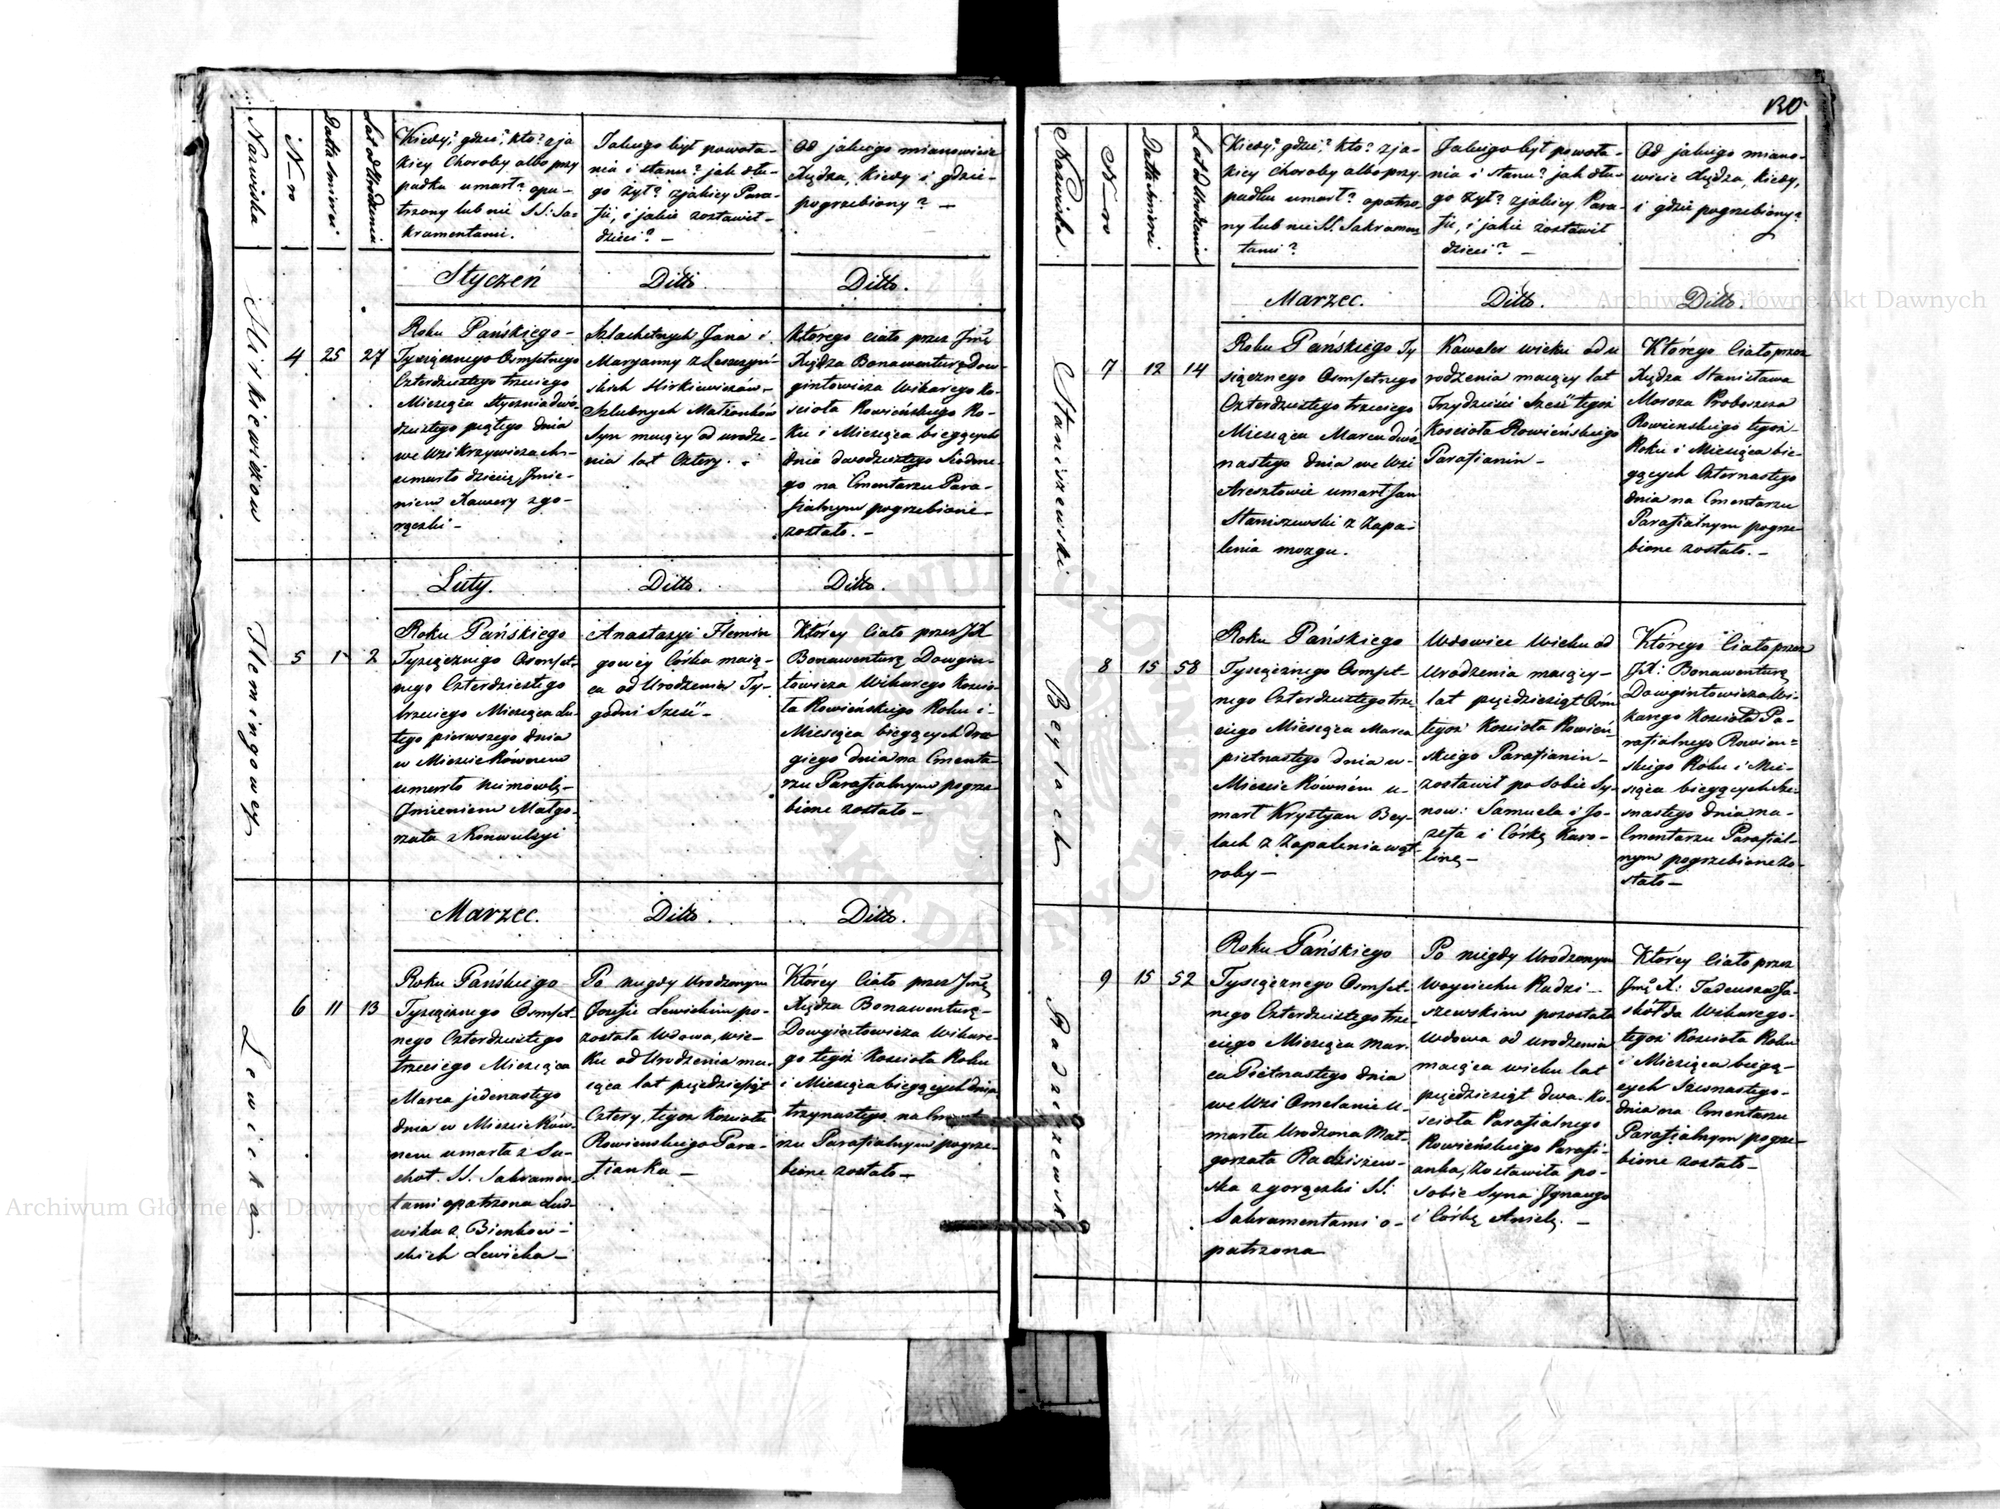 Nazwiska
N-ro
Datta śmierci
Lat od Urodzenia
Kiedy? gdzie? kto? z ja
kiey Choroby albo przy
padku umarł? opa-
trzony lub nie SS: Sa-
kramentami.
Jakiego był powoła-
nia i stanu? jak dłu-
go żył? z jakiey Para-
fii, i jakie zostawił
dzieci? —
Od jakiego mianowicie
Xiędza, kiedy i gdzie
pogrzebiony? —
Styczeń
Ditto.
Ditto.
Hirkiewiczow
4
25
27
Roku Pańskiego -
Tysiącznego Osmsetnego
Czterdziestego trzeciego
Miesiąca Stycznia dwó-
dziestego piątego dnia
we Wsi Krzywiczach -
umarło dziecię, Jmie-
niem Xawery z go-
rączki -
Szlachetnych Jana i
Maryanny z Leszczyń-
skich Hirkiewiczów -
Szlubnych Małżonków
Syn maiący od urodze-
nia lat Cztery.
którego ciało przez Jmć
Xiędza Bonawenturę Dow-
gintowicza Wikarego Ko-
scioła Rowieńskiego Ro-
ku i Miesiąca bieżących
dnia dwódziestego Siódme-
go na Cmentarzu Para-
fialnym pogrzebione
zostało. -
Luty.
Ditto.
Ditto.
Flemingowey
5
1
2
Roku Pańskiego
Tysiącznego Osmset-
nego Czterdziestego
trzeciego Miesiąca Lu-
tego pierwszego dnia
w Mieście Równem
umarło niemowlę -
Jmieniem Małgo-
rzata z Konwulzyi
Anastazyi Flemin
gowey Córka maią-
ca od Urodzenia Ty-
godni Sześć -
Którey Ciało przez JX
Bonawenturę Dowgin-
towicza Wikarego Koscio-
ła Rowieńskiego Roku i
Miesiąca bieżących dru
giego dnia na Cmenta-
rzu Parafialnym pogrze-
bione zostało -
Marzec.
Ditto.
Ditto.
Lewicka
6
11
13
Roku Pańskiego
Tysiącznego Osmset-
nego Czterdziestego
trzeciego Miesiąca
Marca jedenastego
dnia w Mieście Rów-
nem umarła z Su-
chot. SS. Sakramen-
tami opatrzona Lud-
wika z Bieńkow-
skich Lewicka -
Po niegdy Urodzonym
Jozefie Lewickim po-
została Wdowa, wie-
ku od Urodzenia ma-
iąca lat pięćdziesiąt
Cztery, tegoż Kościoła
Rowienskiego Para-
fianka -
Którey Ciało przez Jmć
Xiędza Bonawenturę -
Dowgintowicza Wikare-
go tegoż Kościoła Roku
i Miesiąca bieżących dnia
trzynastego, na Cment
rzu Parafialnym pogrze-
bione zostało -
130
Nazwiska
N-ro
Datta śmierci
Lat od Urodzenia
Kiedy? gdzie? kto? z ja-
kiey Choroby albo przy-
padku umarł? opatrzo-
ny lub nie SS. Sakramen
tami?
Jakiego był powoła-
nia i stanu? jak dłu-
go żył? z jakiey Para-
fii, i jakie zostawił
dzieci? -
Od jakiego miano-
wicie Xiędza, kiedy,
i gdzie pogrzebiony?
Marzec.
Ditto.
Ditto.
Staniszewski
7
12
14
Roku Pańskiego Ty
siącznego Osmsetnego
Czterdziestego trzeciego
Miesiąca Marca dwó
nastego dnia we Wsi
Aresztowie umarł Jan
Staniszewski z Zapa-
lenia mozgu.
Kawaler wieku od u
rodzenia maiący lat
Trzydzieści Sześć tegoż
Kościoła Rowieńskiego
Parafianin -
Którego Ciało przez
Xiędza Stanisława
Moroza Proboszcza
Rowienskiego tegoż
Roku i Miesiąca bie-
żących Czternastego
dnia na Cmentarzu
Parafialnym pogrze-
bione zostało. -
Beylach
8
15
58
Roku Pańskiego
Tysiącznego Osmset-
nego Czterdziestego trze
ciego Miesiąca Marca
pietnastego dnia w
Mieście Równém u-
marł Krystyan Bey-
lach z Zapalenia wąt-
roby -
Wdowiec Wieku od
Urodzenia maiący -
lat pięćdziesiąt Osm
tegoż Kościoła Rowień
skiego Parafianin -
zostawił po sobie Sy-
now: Samuela i Jo-
zefa i Córkę Karo-
linę -
Ktorego Ciało przez
JX: Bonawenturę
Dowgintowicza Wi-
karego Kościoła Pa-
rafialnego Rowień-
skiego Roku i Mie-
siąca bieżących Sze-
snastego dnia na -
Cmentarzu Parafial-
nym pogrzebione zo-
stało -
Radziszewska
9
15
52
Roku Pańskiego
Tysiącznego Osmset-
nego Czterdziestego trze-
ciego Miesiąca Mar-
ca Pietnastego dnia
we Wsi Omelanie u-
marła Urodzona Mał-
gorzata Radziszew-
ska z gorączki SS.
Sakramentami o-
patrzona
Po niegdy Urodzonym
Woyciechu Radzi -
szewskim pozostała
Wdowa od urodzenia
maiąca wieku lat
pięćdziesiąt dwa. Ko-
ścioła Parafialnego
Rowieńskiego Parafi-
anka, Zostawiła po-
sobie Syna Jgnacego
i Córkę Anielę. -
Którey Ciało przez
Jmć X: Tadeusza Ja-
skołda Wikarego -
tegoż Kościoła Roku
i Miesiąca bieżą-
cych Szesnastego -
dnia na Cmentarzu
Parafialnym pogrze-
bione zostało -
Archiwum Główne Akt Dawnych
Archiwum Główne Akt Dawnych